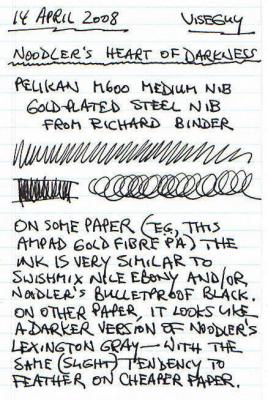 14 APRIL 2008 VISEGUY
NOODLER'S HEART OF DARKNESS
PELIKAN M600 MEDIUM NIB
GOLD-PLATED STEEL NIB
FROM RICHARD BINDER
ON SOME PAPER (EG, THIS
AMPAD GOLD FIBRE PAD) THE
INK IS VERY SIMILAR TO
SWISHMIX NILE EBONY AND/OR
NOODLER'S BULLETPROOF BLACK.
ON OTHER PAPER, IT LOOKS LIKE
A DARKER VERSION OF NOODLER'S
LEXINGTON GRAY — WITH THE
SAME (SLIGHT) TENDENCY TO
FEATHER ON CHEAPER PAPER.